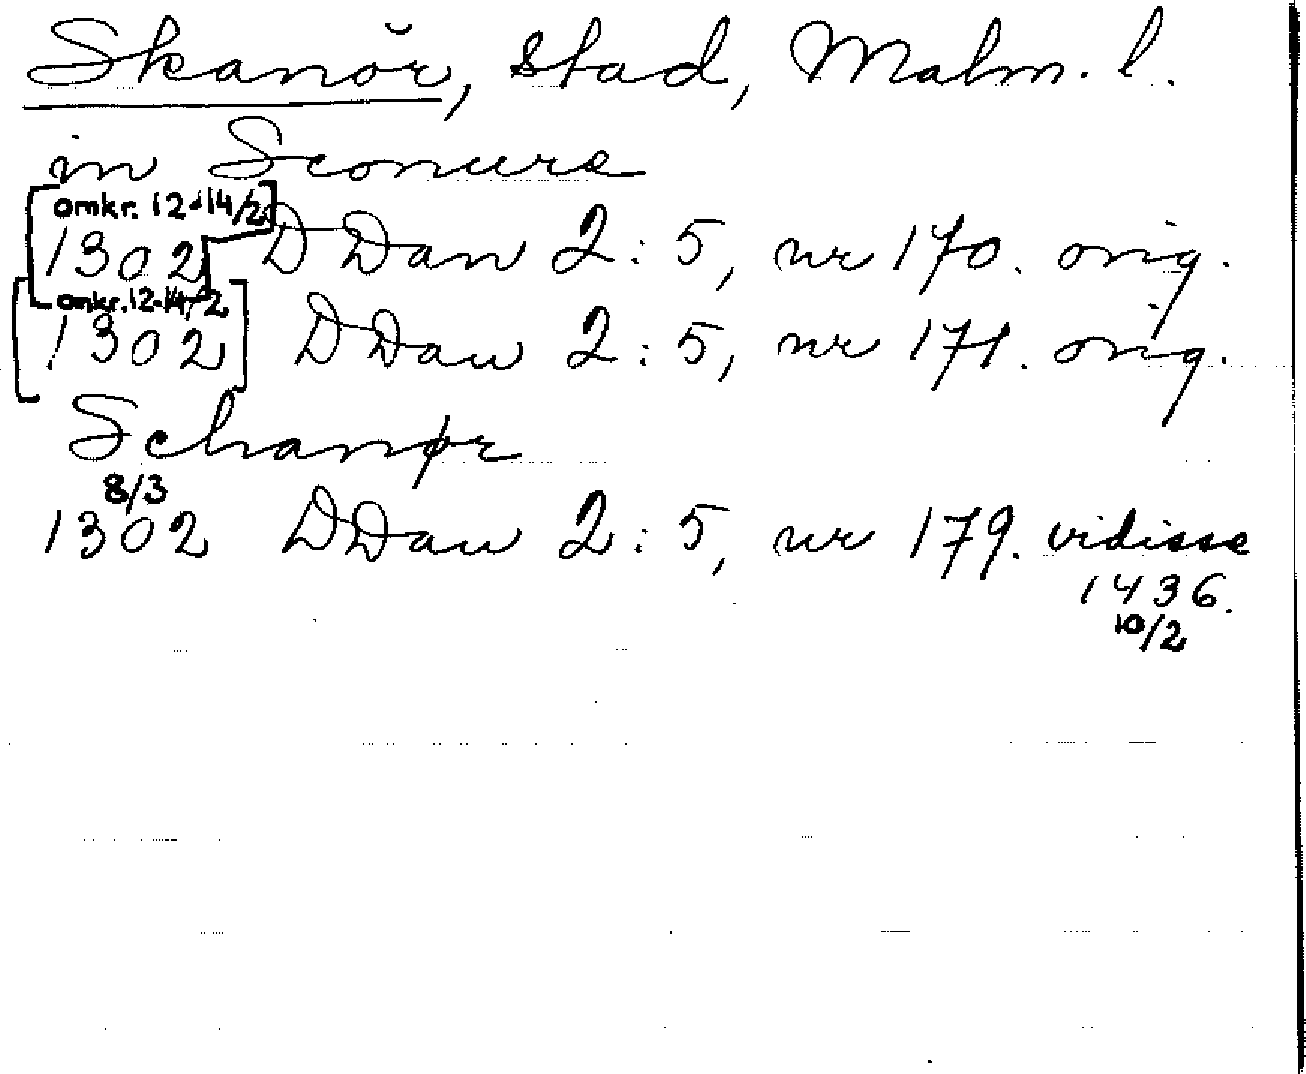 Skanör, stad, Malm. l.
in Sconure
[omkr. 12-14/2
1302] DDan 2:5, nr 170. orig.
[omkr. 12-14/2
1302] DDan 2:5, nr 171. orig.
Schanør
8/3
1302 DDan 2:5, nr 179. vidisse
1436.
10/2